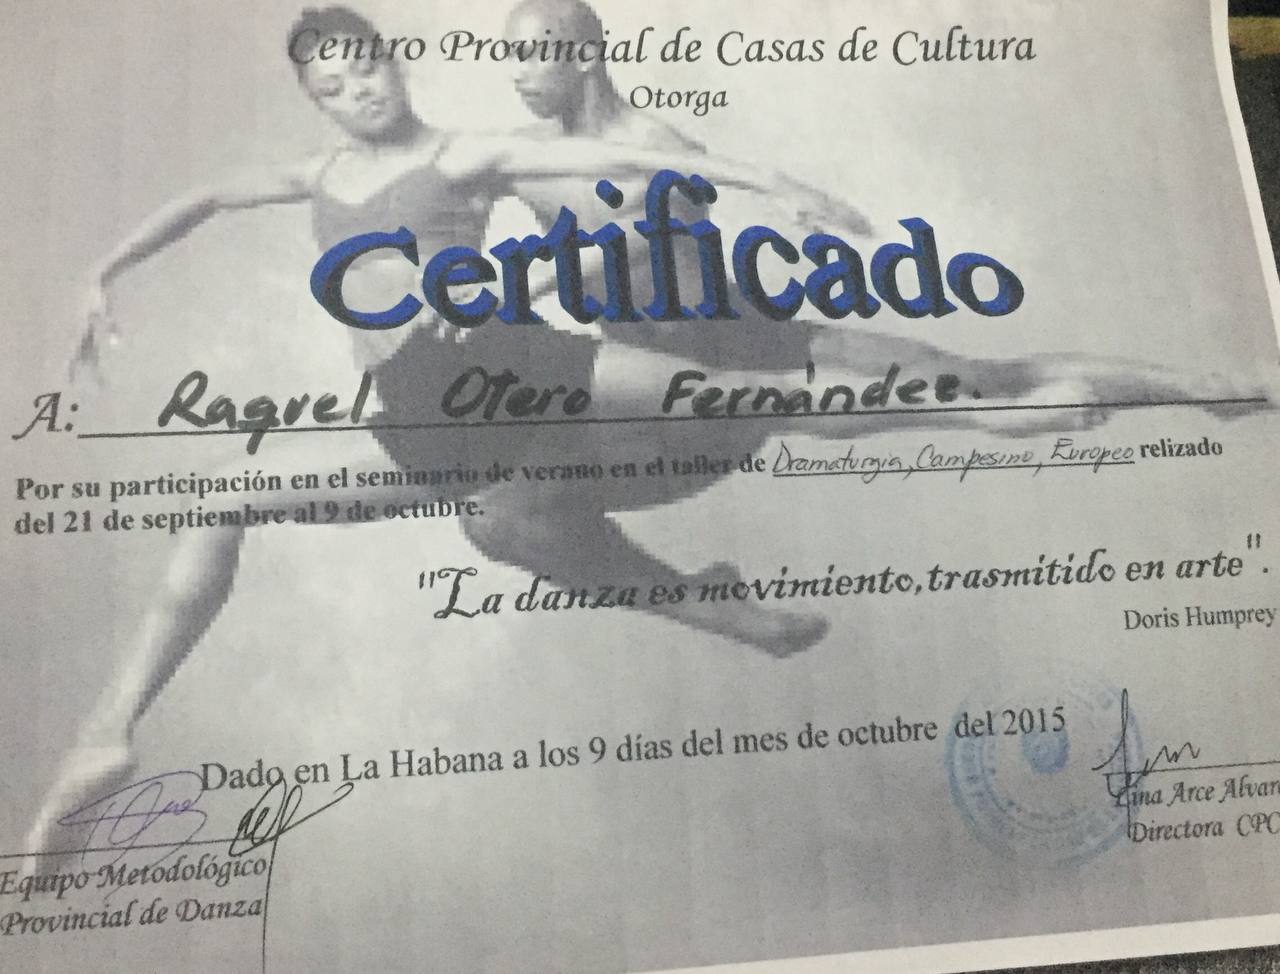 Centro Provincial de Casas de Cultura
Otorga
Certificado
A: Raquel Otero Fernández.
Por su participación en el seminario de verano en el taller de Dramaturgia, Campesino, Europeo relizado
del 21 de septiembre al 9 de octubre.
"La danza es movimiento, trasmitido en arte".
Doris Humprey
Dado en La Habana a los 9 días del mes de octubre del 2015
Equipo Metodológico
Provincial de Danza
Lina Arce Alvar
Directora CPC